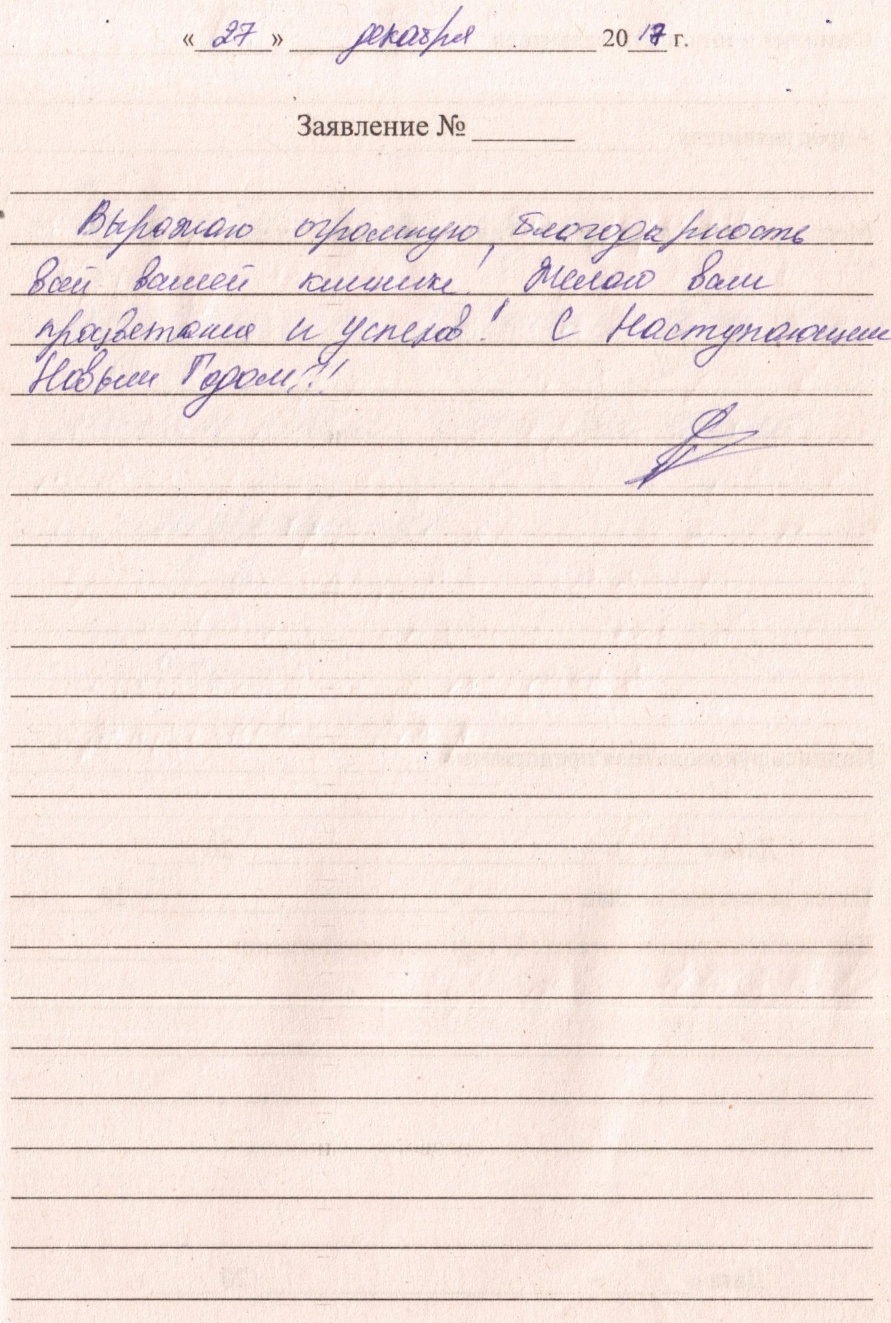 « 27 » декабря 2017 г.
Заявление № ______
Выражаю огромную благодарность
всей вашей клинике! Желаю вам
процветания и успехов! С Наступающим
Новым Годом!!!